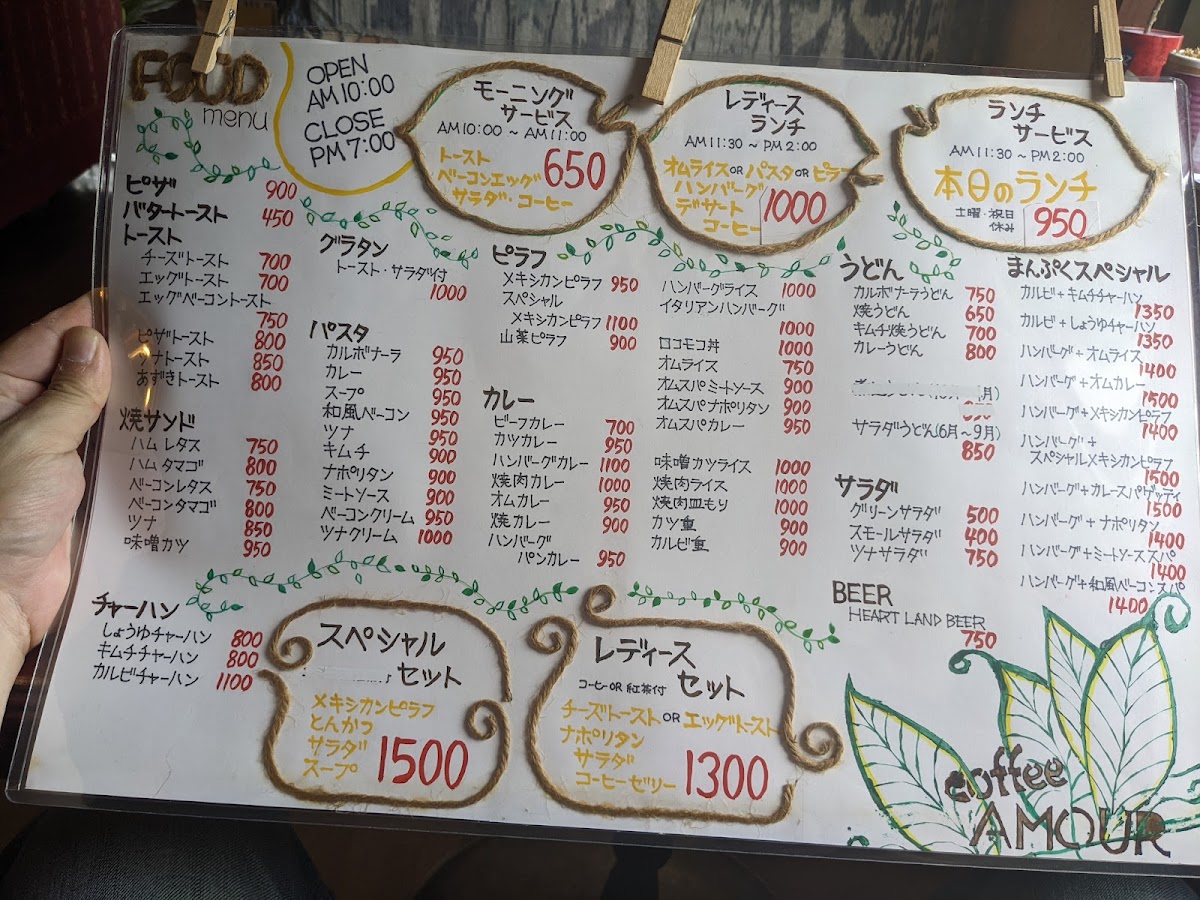 FOOD
menu
OPEN
AM10:00
CLOSE
PM 7:00
モーニング
サービス
AM10:00 ~ AM11:00
トースト
ベーコンエッグ
サラダ・コーヒー
650
レディース
ランチ
AM11:30 ~ PM2:00
オムライス OR パスタ OR ピラフ
ハンバーグ
デザート
コーヒー
1000
ランチ
サービス
AM11:30 ~ PM2:00
本日のランチ
土曜・祝日
休み
950
ピザ 900
バタートースト 450
トースト
チーズトースト 700
エッグトースト 700
エッグベーコントースト
750
ピザトースト 800
ツナトースト 850
あずきトースト 800
焼サンド
ハムレタス 750
ハムタマゴ 800
ベーコンレタス 750
ベーコンタマゴ 800
ツナ 850
味噌カツ 950
チャーハン
しょうゆチャーハン 800
キムチチャーハン 800
カルビチャーハン 1100
グラタン
トースト・サラダ付
1000
パスタ
カルボナーラ 950
カレー 950
スープ 950
和風ベーコン 950
ツナ 950
キムチ 900
ナポリタン 900
ミートソース 900
ベーコンクリーム 950
ツナクリーム 1000
ピラフ
メキシカンピラフ 950
スペシャル
メキシカンピラフ 1100
山菜ピラフ 900
カレー
ビーフカレー 700
カツカレー 950
ハンバーグカレー 1100
焼肉カレー 1000
オムカレー 950
焼カレー 900
ハンバーグ
パンカレー 950
ハンバーグライス 1000
イタリアンハンバーグ
1000
ロコモコ丼 1000
オムライス 750
オムスパミートソース 900
オムスパナポリタン 900
オムスパカレー 950
味噌カツライス 1000
焼肉ライス 1000
焼肉皿もり 1000
カツ重 900
カルビ重 900
うどん
カルボナーラうどん 750
焼うどん 650
キムチ焼うどん 700
カレーうどん 800
月)
サラダうどん(6月~9月)
850
サラダ
グリーンサラダ 500
スモールサラダ 400
ツナサラダ 750
BEER
HEART LAND BEER
750
まんぷくスペシャル
カルビ+キムチチャーハン
1350
カルビ+しょうゆチャーハン
1350
ハンバーグ+オムライス
1400
ハンバーグ+オムカレー
1500
ハンバーグ+メキシカンピラフ
1400
ハンバーグ+
スペシャルメキシカンピラフ
1500
ハンバーグ+カレースパゲッティ
1500
ハンバーグ+ナポリタン
1400
ハンバーグ+ミートソーススパ
1400
ハンバーグ+和風ベーコンスパ
1400
スペシャル
セット
メキシカンピラフ
とんかつ
サラダ
スープ
1500
レディース
コーヒーOR紅茶付 セット
チーズトースト OR エッグトースト
ナポリタン
サラダ
コーヒーゼリー
1300
coffee
AMOUR